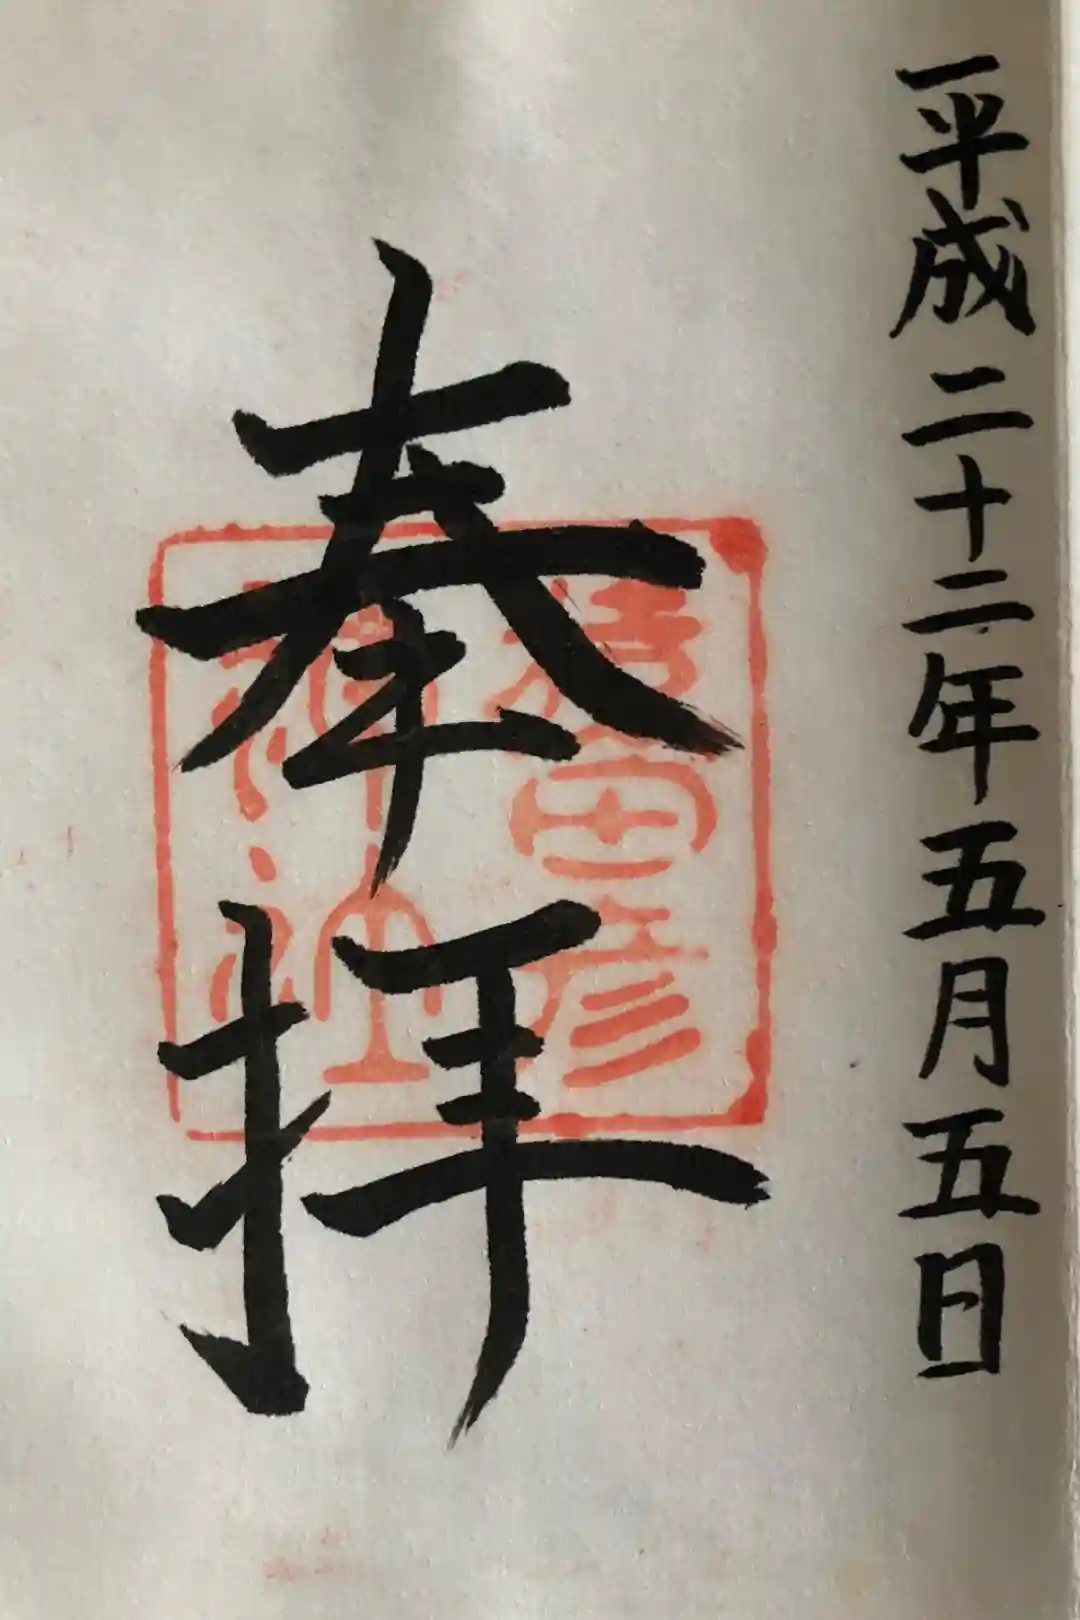 平成二十二年五月五日
奉拝
猿田彦
神社